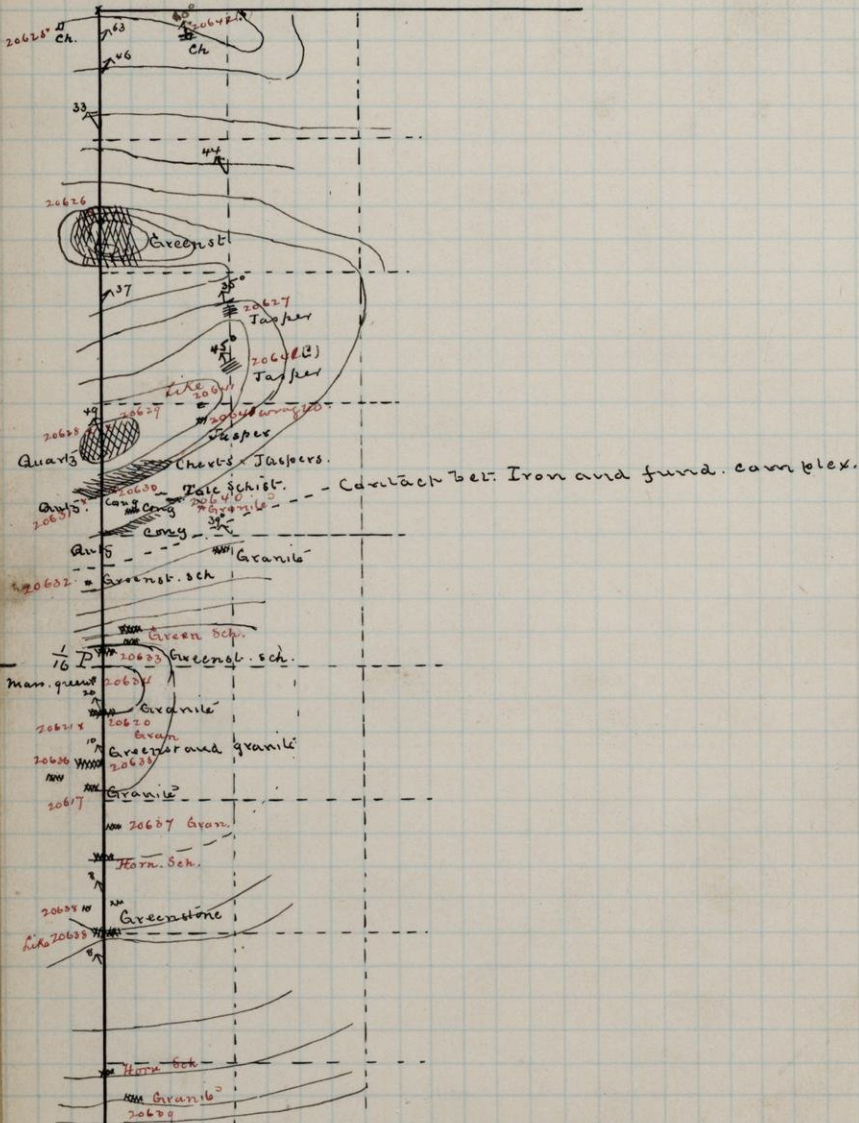 Ch.
63
60°
Ch
46
33
44
20626
Greenst
37
35°
20627
Jasper
45°
Jasper
Like
49
20629
20628
Jasper
Quartz
Cherts & Jaspers.
20630
Talc Schist.
Contact bet. Iron and fund. complex.
Cong
20640
Granite
Cong
Cong
30°
Granite
20632
Greenst. sch
Green Sch.
1/16 P
20633
Greenst. sch.
Mass. greenst
20634
20
Granite
20621
20620
Gran
10
Greenst and granite
20636
20635
Granite
20617
20637 Gran.
Horn. Sch.
8
20638
Greenstone
Like 20638
8
Horn Sch
Granite
20639